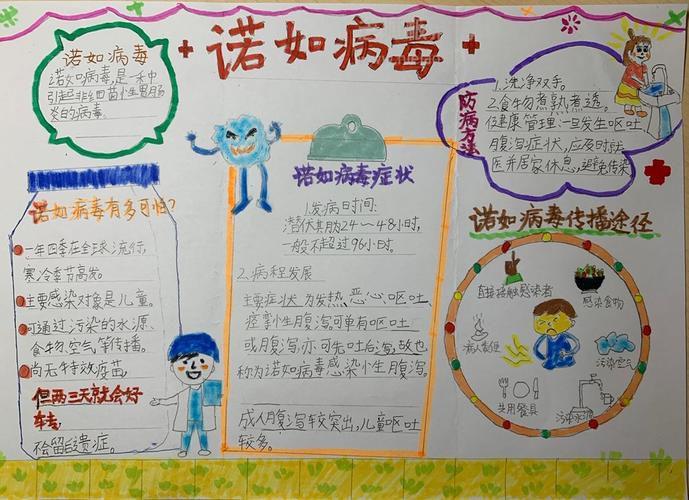 诺如病毒
诺如病毒
诺如病毒,是一种
引起非细菌性胃肠
炎的病毒.
防病方法
1.洗净双手。
2.食物煮熟煮透。
健康管理:一旦发生呕吐
腹泻症状,应及时就
医并居家休息,避免传染
诺如病毒有多可怕?
一年四季在全球流行,
寒冷季节高发。
主要感染对象是儿童。
可通过污染的水源、
食物、空气等传播。
尚无特效疫苗,
但两三天就会好
转,
不会留后遗症。
诺如病毒症状
1.发病时间:
潜伏其胁24~48小时,
一般不超过96小时。
2.病程发展
主要症状为发热、恶心、呕吐、
痉挛性腹泻。可单有呕吐
或腹泻,亦可先吐后泻,故也
称为诺如病毒感染小生腹泻。
成人腹泻较突出,儿童呕吐
较多。
诺如病毒传播途径
直接接触感染者
感染食物
病人粪便
污染空气
共用餐具
污染水源